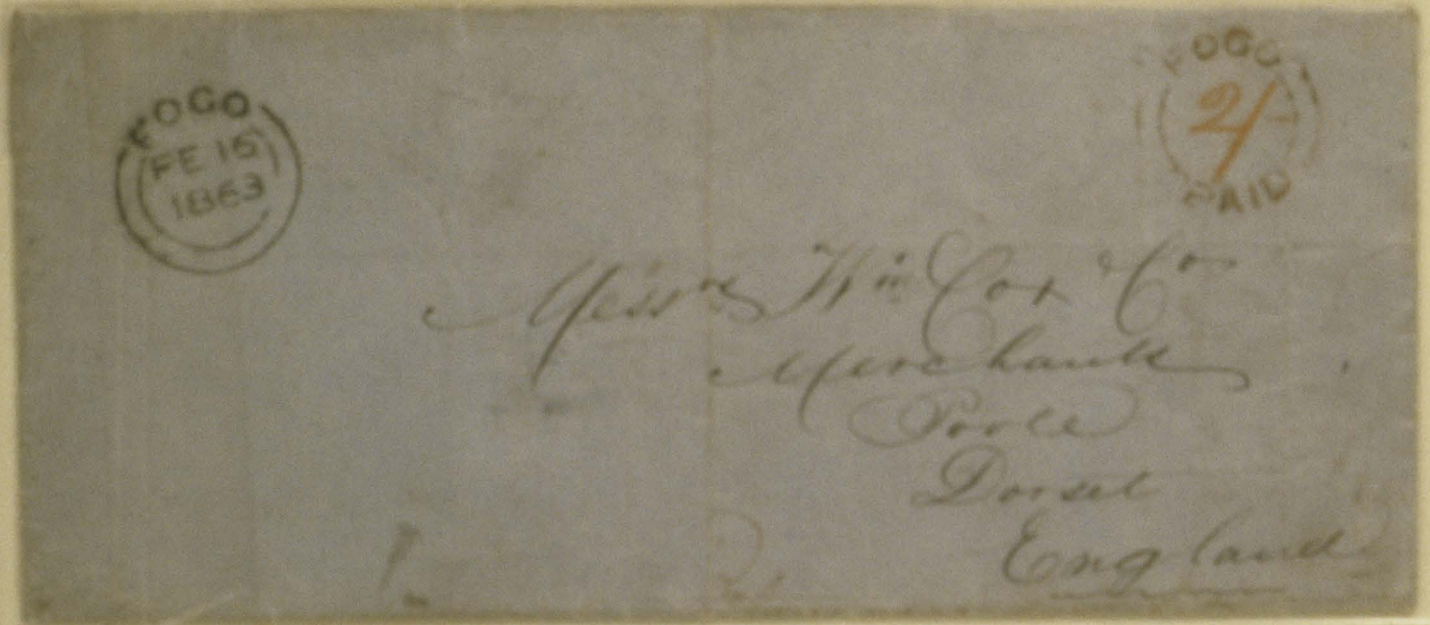 FOGO
FE 16
1863
FOGO
2/
PAID
Messrs Wm Cox & Co
Merchants
Poole
Dorset
England